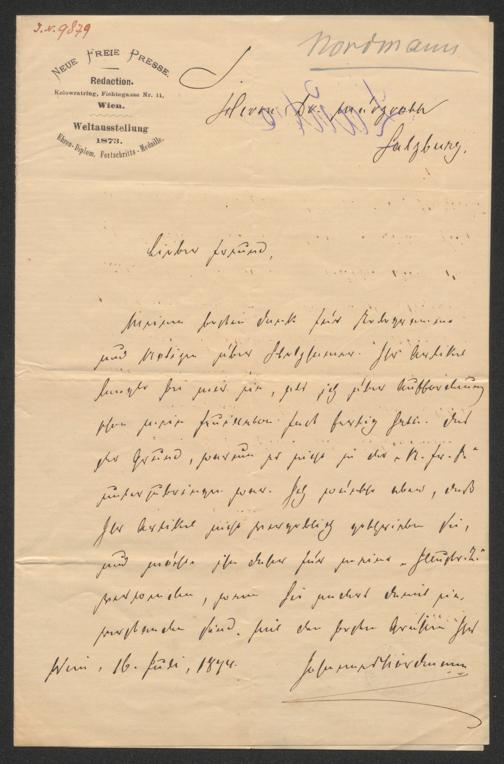 J.N. 9879
Nordmann
NEUE FREIE PRESSE.
Redaction.
Kolowratring, Fichtegasse Nr. 11,
Wien.
Weltausstellung
1873.
Ehren-Diplom, Fortschritts-Medaille.
Herrn Dr.
Salzburg.
Lieber Freund,
Meinen besten Dank für Telegramme
und Notizen über Stelzhamer. Ihr Artikel
langte bei mir ein, als ich über Aufforderung
schon mein Feuilleton fast fertig hatte. Das
der Grund, warum er nicht in der „N. fr. P."
unterzubringen war. Ich wünschte aber, daß
Ihr Artikel nicht vergeblich geschrieben sei,
und möchte ihn daher für meine
verwenden, wenn Sie anders damit ein-
verstanden sind. Mit den besten Grüßen Ihr
Wien, 16. Juli, 1874. Johannes Nordmann